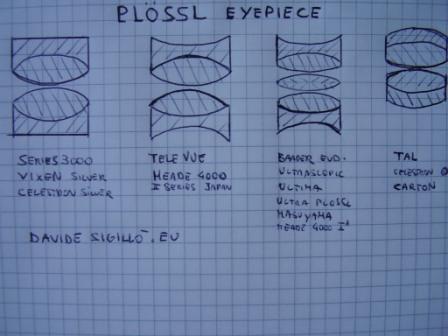 PLÖSSL EYEPIECE
SERIES 3000
VIXEN SILVER
CELESTRON SILVER
TELE VUE
MEADE 4000
II SERIES JAPAN
BAADER EUD.
ULTRASCOPIC
ULTIMA
ULTRA PLOSSL
MASUYAMA
MEADE 4000 I
TAL
CELESTRON
CARTON
DAVIDE SIGILLÒ.EU